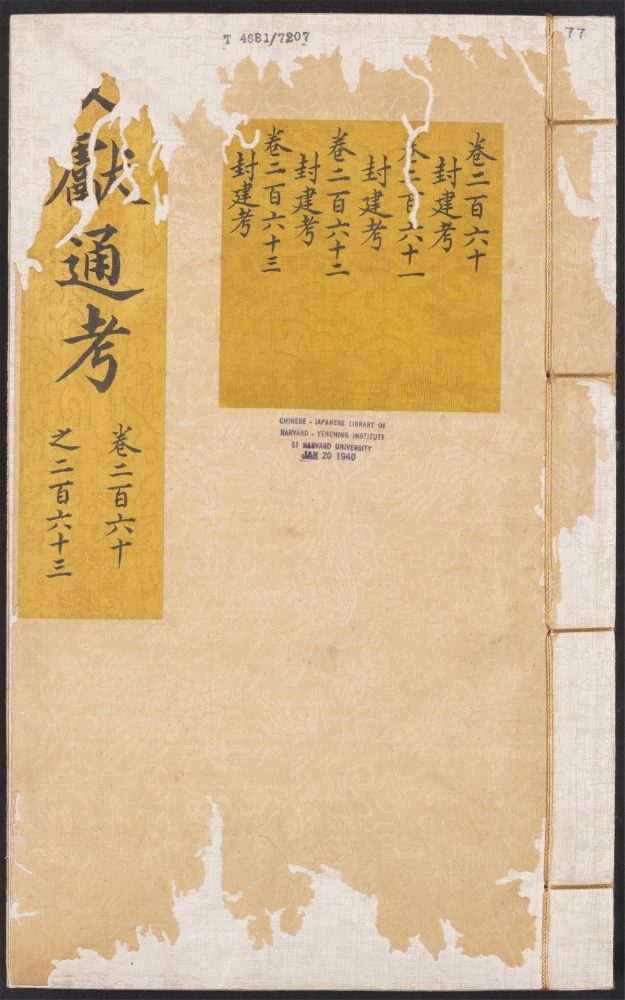 T 4681/7207
77
獻通考
卷二百六十
之二百六十三
卷二百六十
封建考
卷二百六十一
封建考
卷二百六十二
封建考
卷二百六十三
封建考
CHINESE - JAPANESE LIBRARY OF
HARVARD - YENCHING INSTITUTE
AT HARVARD UNIVERSITY
JAN 20 1940